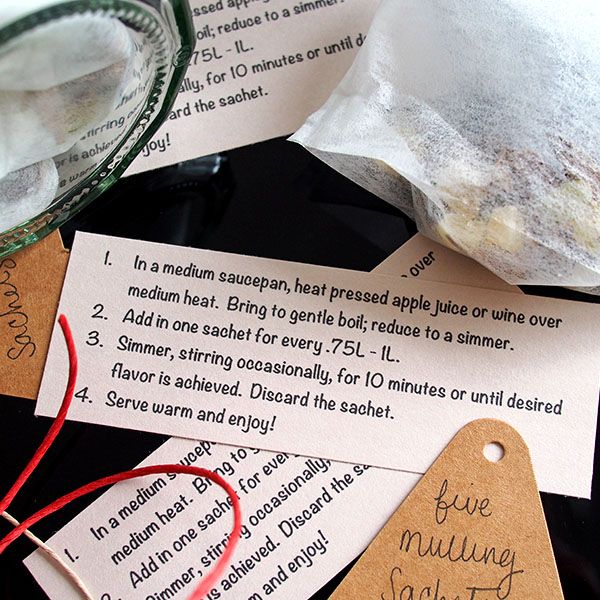 pressed apple
boil; reduce to a simmer.
.75L - 1L.
stirring occasionally, for 10 minutes or until de
is achieved. Discard the sachet.
njoy!
over
sachets
1. In a medium saucepan, heat pressed apple juice or wine over
medium heat. Bring to gentle boil; reduce to a simmer.
2. Add in one sachet for every .75L - 1L.
3. Simmer, stirring occasionally, for 10 minutes or until desired
flavor is achieved. Discard the sachet.
4. Serve warm and enjoy!
1. In a medium saucepan
medium heat. Bring to g
Add in one sachet for every
Simmer, stirring occasionally
is achieved. Discard the s
and enjoy!
five
mulling
sachet